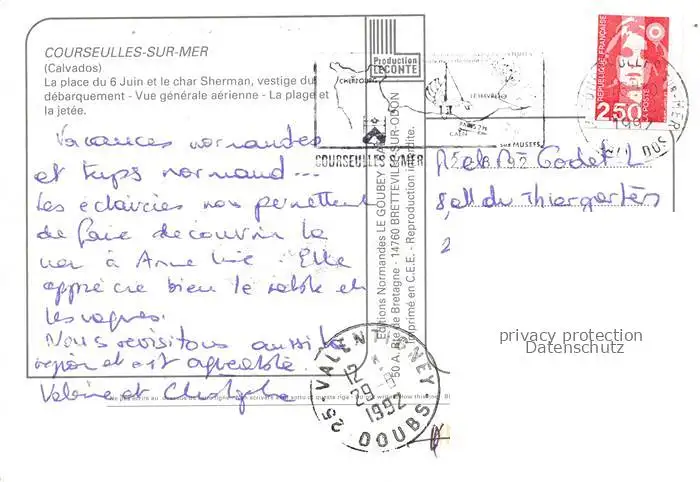 COURSEULLES-SUR-MER
(Calvados)
La place du 6 Juin et le char Sherman, vestige du
débarquement - Vue générale aérienne - La plage et
la jetée.
Vacances normandes
et temps normand...
Les éclaircies nous permettent
de faire découvrir la
mer à Anne Lise. Elle
apprécie bien le sable et
les vagues.
Nous revisitons aussi la
région et c'est agréable.
Valérie et Christophe
Production
LECONTE
Editions Normandes LE GOUBEY
50 A, Rte de Bretagne - 14760 BRETTEVILLE-SUR-ODON
Imprimé en C.E.E. - Reproduction interdite.
CHERBOURG
LE HAVRE
CAEN
COURSEULLES S/MER
REPUBLIQUE FRANÇAISE
LA POSTE
2,50
1992
CALVADOS
Godet L
8, all du Thiergarten
2
privacy protection
Datenschutz
25 - VALENTIGNEY
12
29-
1992
DOUBS